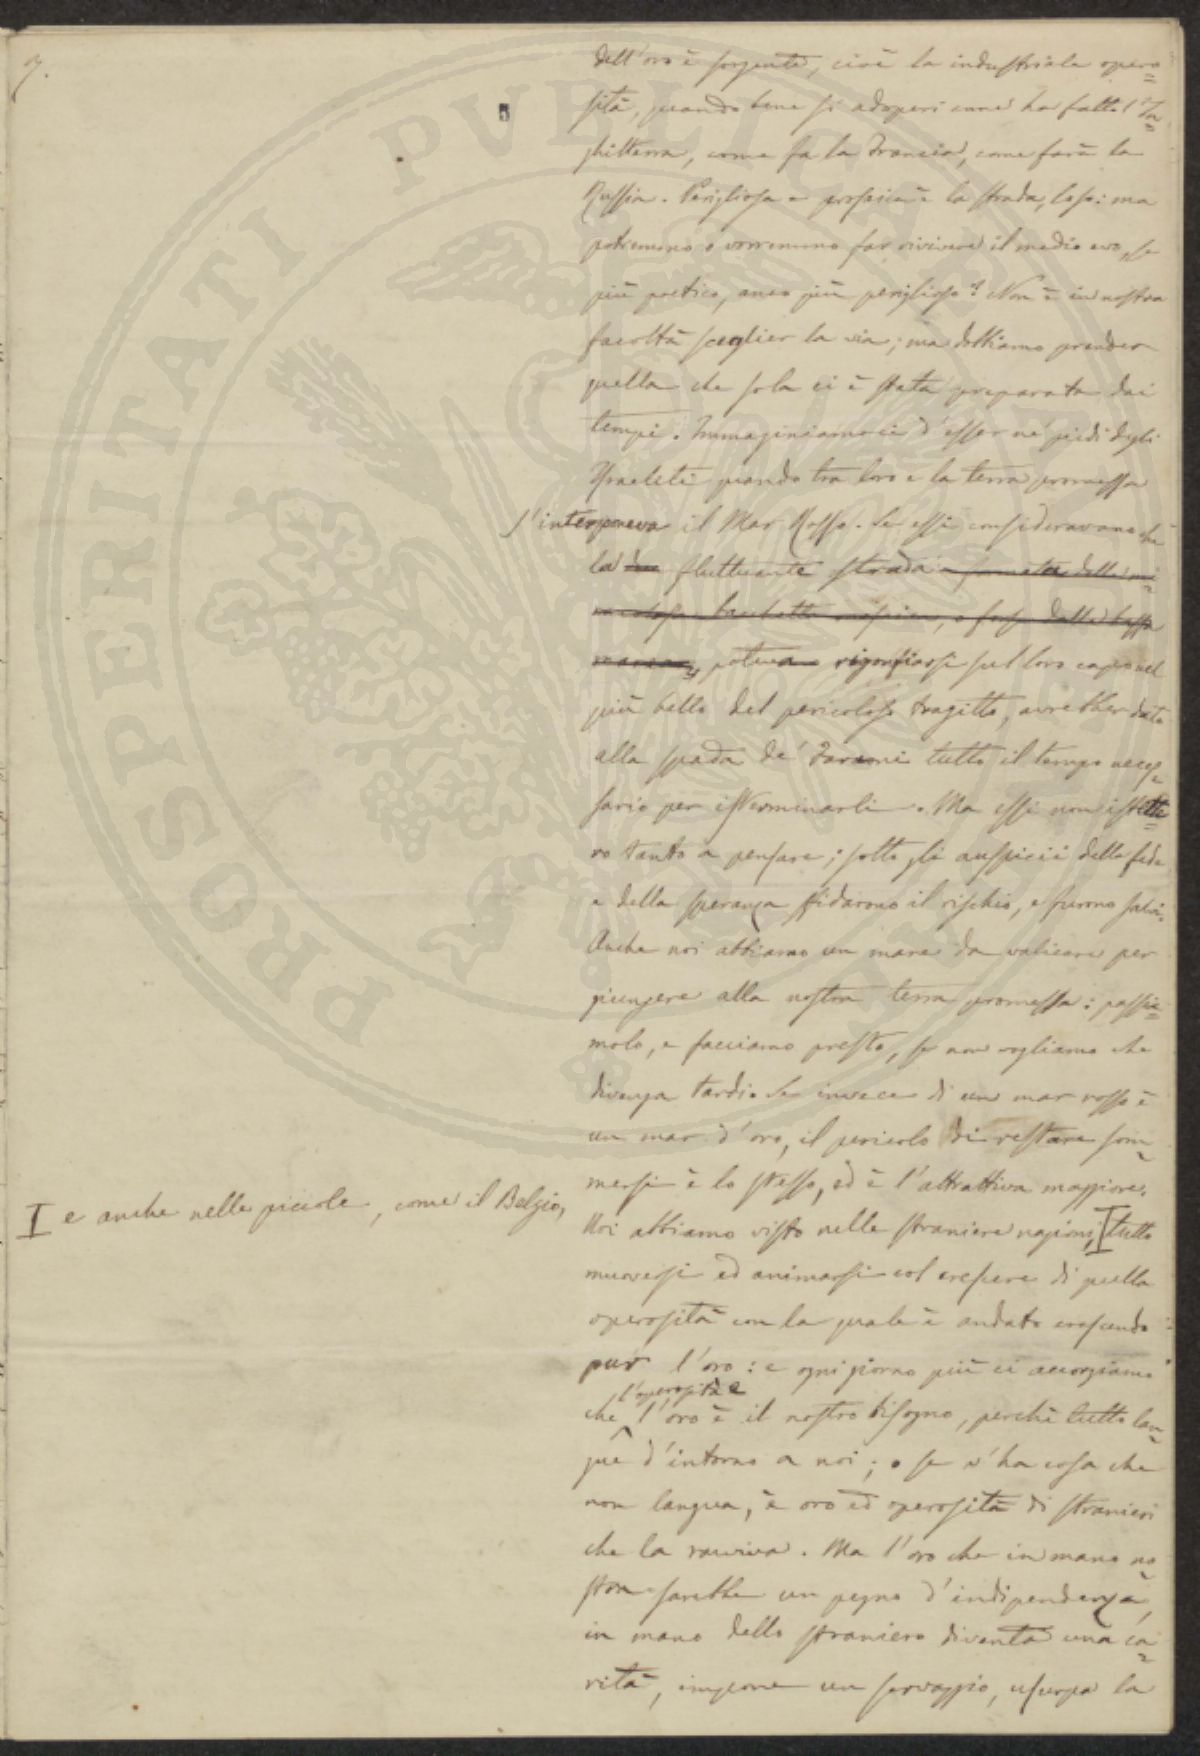 7.
dell'oro è sorgente, cioè la industriale opero=
sità, quando bene si adoperi come ha fatto l'In=
ghilterra, come fa la Francia, come farà la
Russia. Perigliosa e prosaica è la strada, lo so: ma
potremmo o vorremmo far rivivere il medio evo, se
più poetico, anco più periglioso? Non è in nostra
facoltà sceglier la via; ma dobbiamo prender
quella che sola ci è stata preparata dai
tempi. Immaginiamoci d'esser ne' piedi degli
Israeliti quando tra loro e la terra promessa
s'interponeva il Mar Rosso. Se essi consideravano che
la fluttuante strada
poteva rigonfiarsi sul loro capo nel
più bello del pericoloso tragitto, avrebber dato
alla spada de' Faraoni tutto il tempo neces=
sario per isterminarli. Ma essi non istette=
ro tanto a pensare; sotto gli auspicii della fede
e della speranza sfidarono il rischio, e furono salvi.
Anche noi abbiamo un mare da valicare per
giungere alla nostra terra promessa: passia=
molo, e facciamo presto, se non vogliamo che
divenga tardi. Se invece di un mar rosso è
un mar d'oro, il pericolo di restare som=
mersi è lo stesso, ed è l'attrattiva maggiore.
I e anche nelle piccole, come il Belgio,
Noi abbiamo visto nelle straniere nazioni, I tutto
muoversi ed animarsi col crescere di quella
operosità con la quale è andato crescendo
pur l'oro: e ogni giorno più ci accorgiamo
l'operosità e
che l'oro è il nostro bisogno, perchè tutto lan=
gue d'intorno a noi; o se v'ha cosa che
non langua, è oro ed operosità di stranieri
che la ravviva. Ma l'oro che in mano no=
stra sarebbe un pegno d'indipendenza,
in mano dello straniero diventa una ca=
rità, impone un servaggio, usurpa la